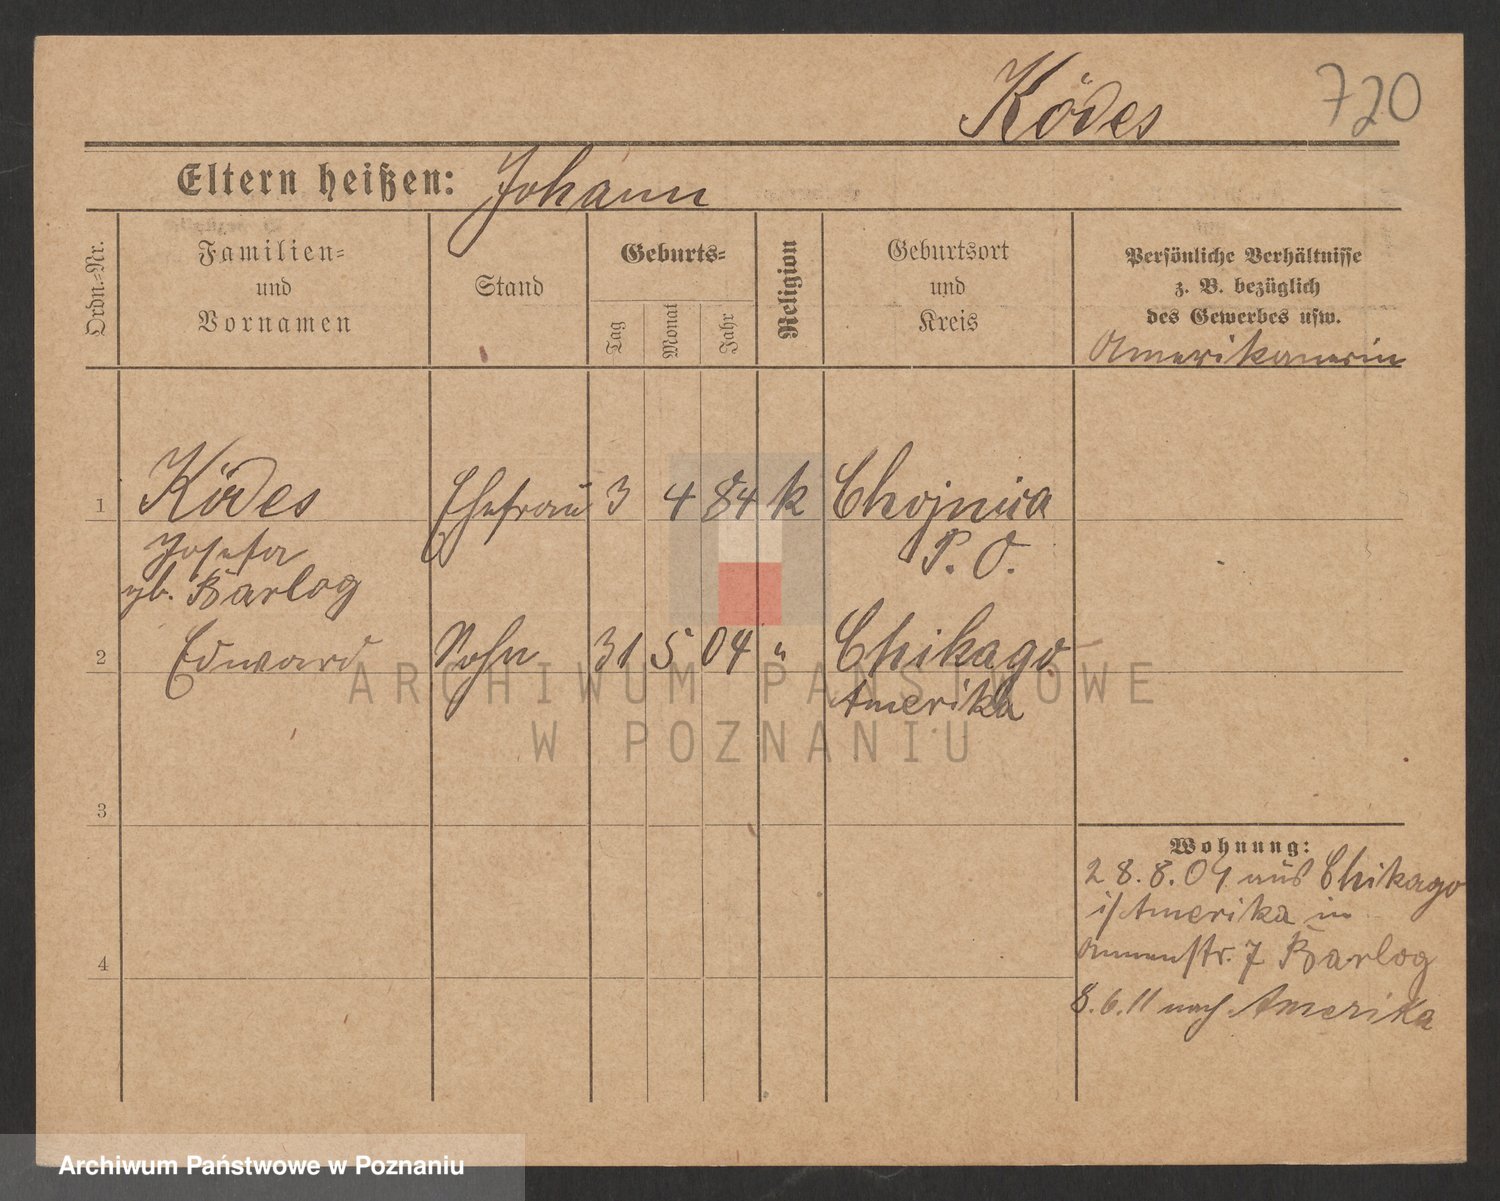 Ködes 720
Eltern heißen: Johann
Ordn.-Nr.
Familien-
und
Vornamen
Stand
Geburts-
Tag
Monat
Jahr
Religion
Geburtsort
und
Kreis
Persönliche Verhältnisse
z. B. bezüglich
des Gewerbes usw.
Amerikanerin
1 Ködes Ehefrau 3 4 84 k Chojnica
P. O.
Josefa
gb. Barlog
2 Edward Sohn 31 5 04 " Chikago
Amerika
3
4
Wohnung:
28.8.09 aus Chikago
i/Amerika in
Annenstr. 7 Barlog
8.6.11 nach Amerika
ARCHIWUM PAŃSTWOWE
W POZNANIU
Archiwum Państwowe w Poznaniu